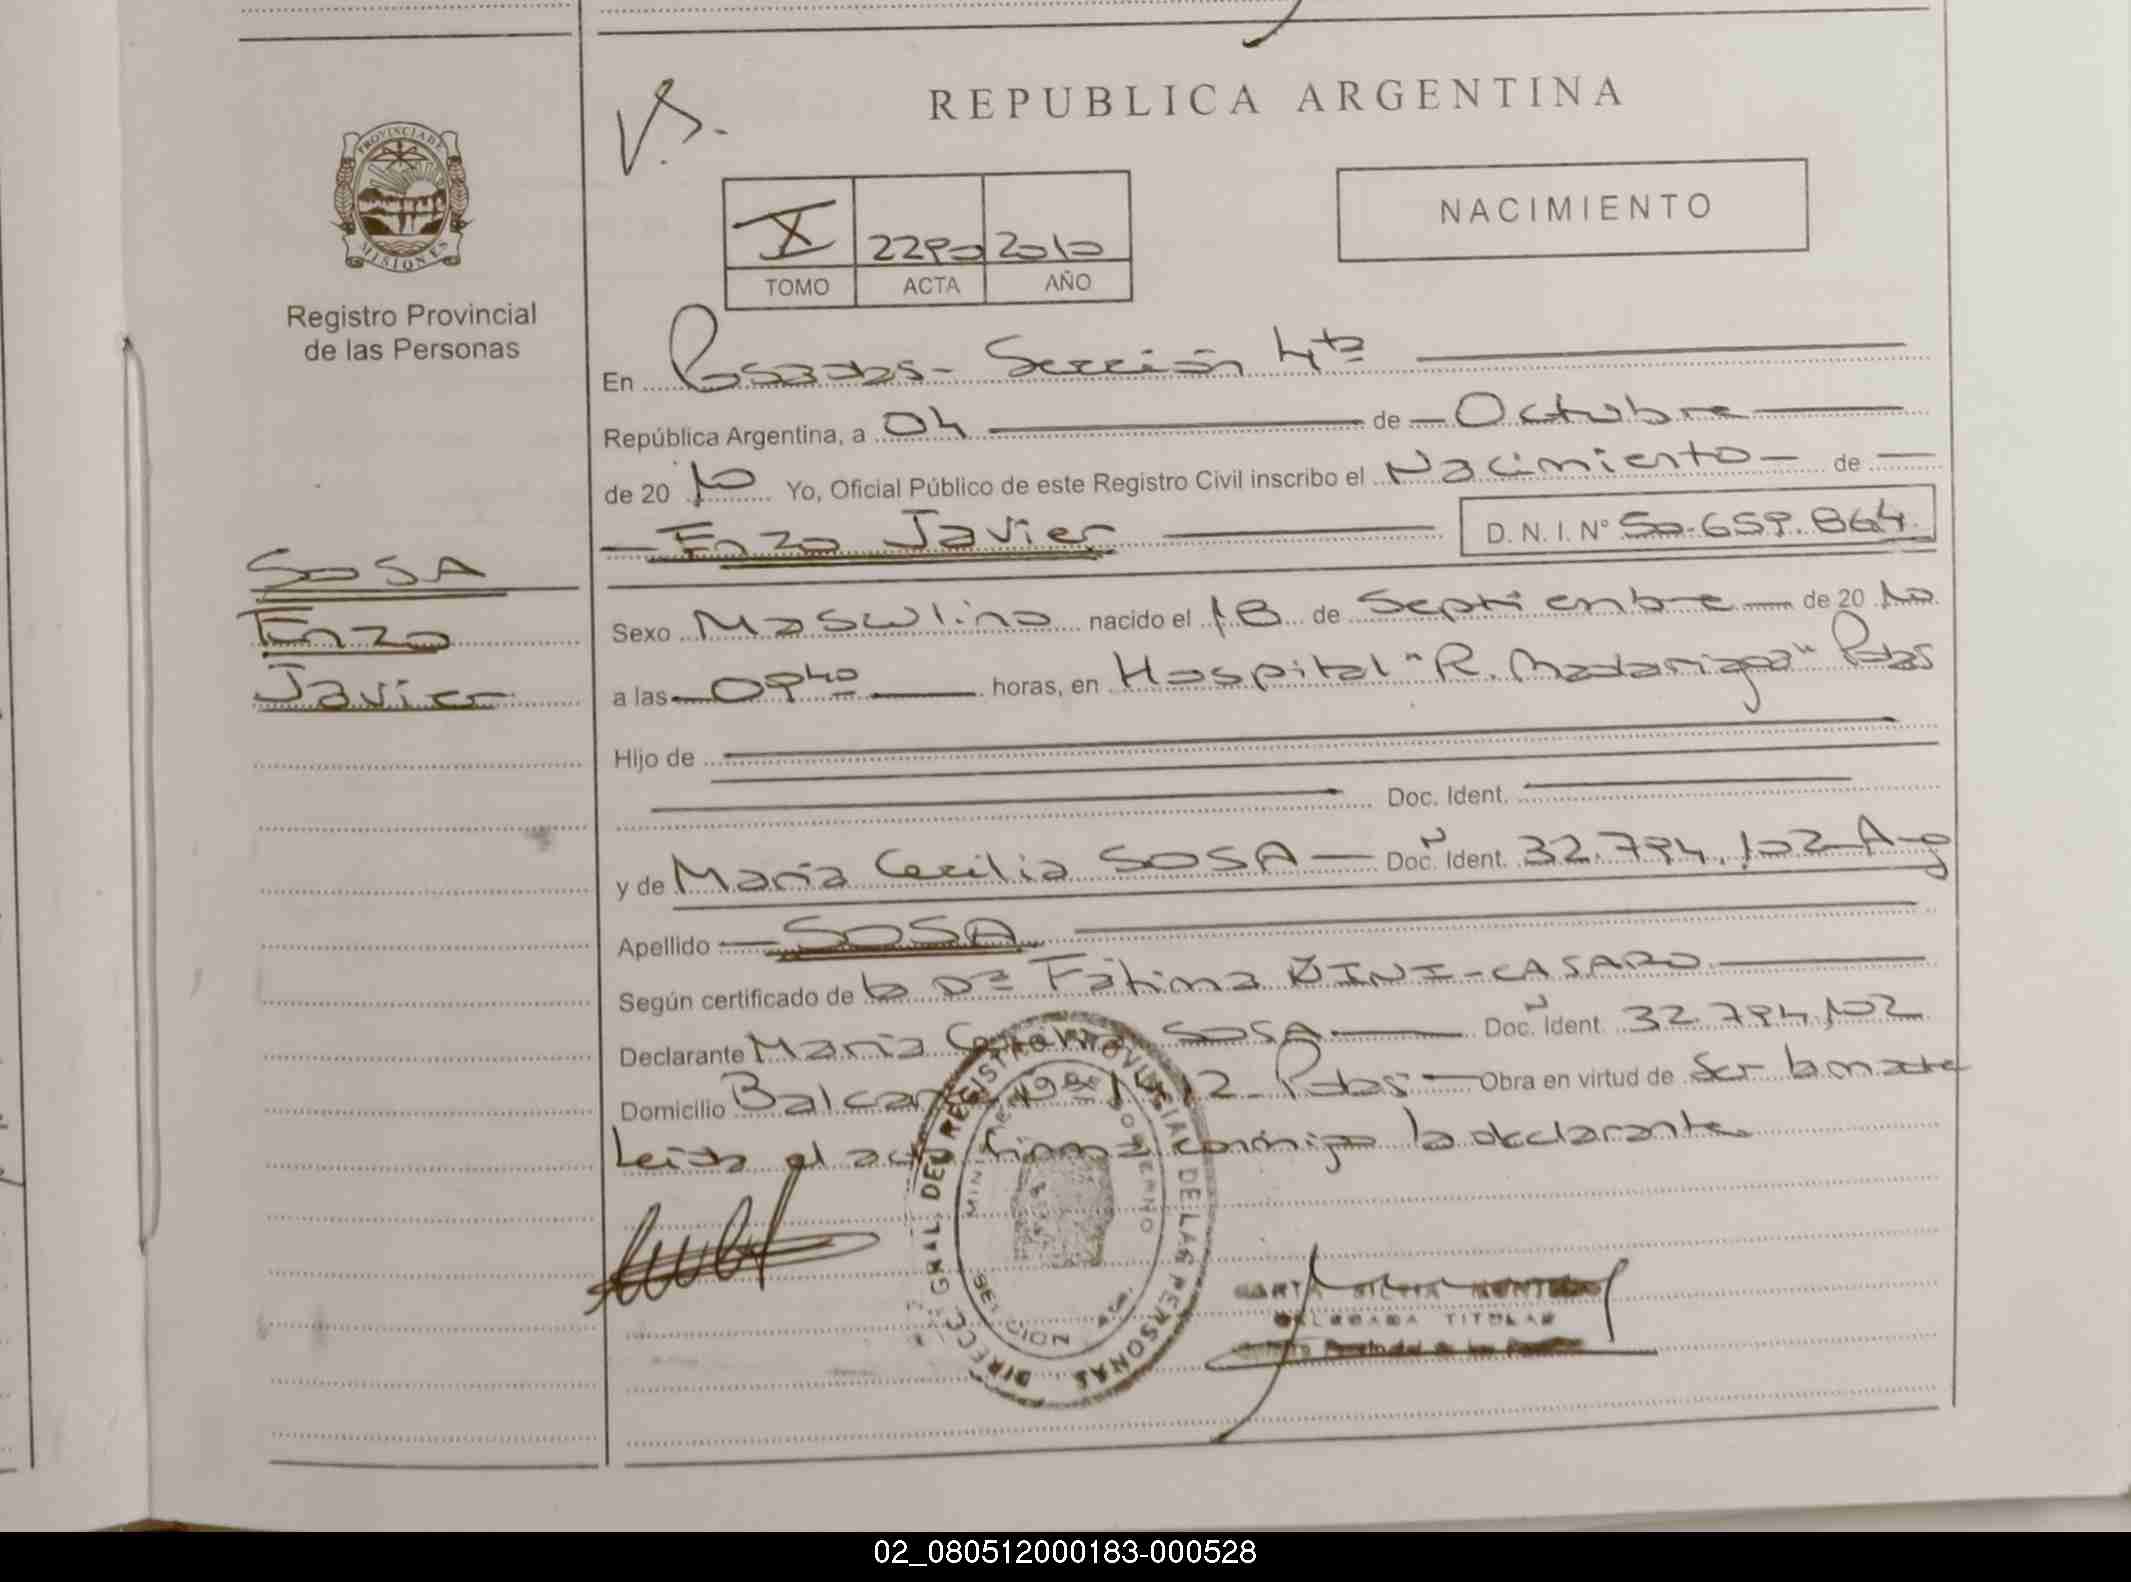 V.S.
REPUBLICA ARGENTINA
PROVINCIA DE MISIONES
NACIMIENTO
X 2290 2010
TOMO ACTA AÑO
Registro Provincial
de las Personas
En Posadas - Sección 4ta
República Argentina, a 04 de Octubre
de 20 10 Yo, Oficial Público de este Registro Civil inscribo el Nacimiento de
Enzo Javier D.N.I. N° 50.659.864
SOSA
Enzo
Javier
Sexo Masculino nacido el 18 de Septiembre de 20 10
a las 09 40 horas, en Hospital "R. Madariaga" Pdas
Hijo de
Doc. Ident.
y de María Cecilia SOSA Doc. Ident. 32.794.102 Arg
Apellido SOSA
Según certificado de la Dra Fátima DINI-CASARO
Declarante María SOSA Doc. Ident. 32.794.102
Domicilio Pdas Obra en virtud de ser la madre
Leída el acta firma conmigo la declarante
DIREC. GRAL. DEL REGISTRO PROVINCIAL DE LAS PERSONAS
DELEGADA TITULAR
02_080512000183-000528